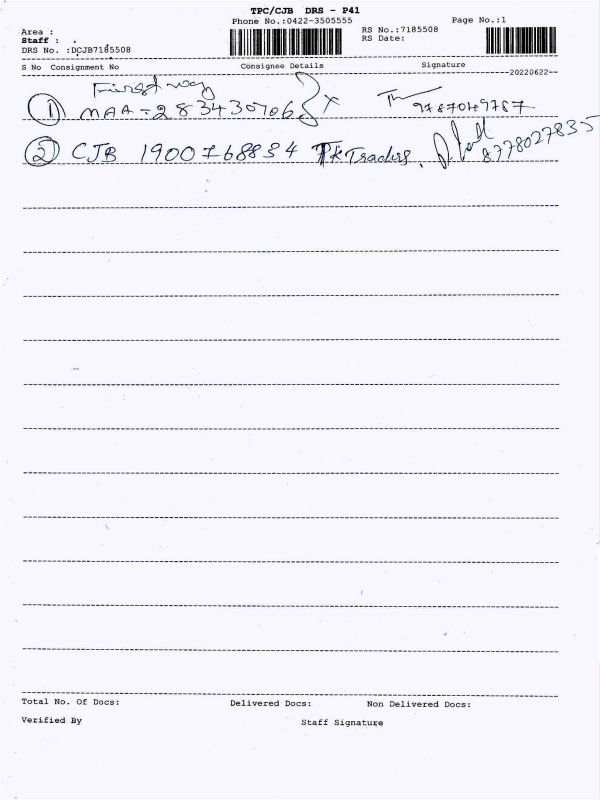 TPC/CJB DRS - P41
Phone No.:0422-3505555
Page No.:1
Area :
RS No.:7185508
Staff :
RS Date:
DRS No. :DCJB7185508
S No Consignment No Consignee Details Signature
--20220622--
First way
1 MAA = 283430706 x 9787049787
2 CJB 1900768834 TK Traders. 8778027835
Total No. Of Docs: Delivered Docs: Non Delivered Docs:
Verified By Staff Signature